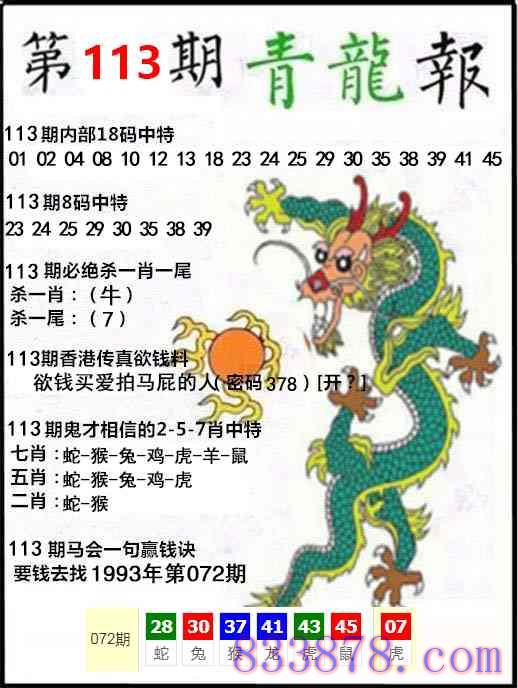 第113期青龍報
113期内部18码中特
01 02 04 08 10 12 13 18 23 24 25 29 30 35 38 39 41 45
113期8码中特
23 24 25 29 30 35 38 39
113期必绝杀一肖一尾
杀一肖：（牛）
杀一尾：（7）
113期香港传真欲钱料
欲钱买爱拍马屁的人（密码378）[开？]
113期鬼才相信的2-5-7肖中特
七肖：蛇-猴-兔-鸡-虎-羊-鼠
五肖：蛇-猴-兔-鸡-虎
二肖：蛇-猴
113期马会一句赢钱诀
要钱去找1993年第072期
072期 28 30 37 41 43 45 07
蛇 兔 猴 龙 虎 鼠 虎
833878.com